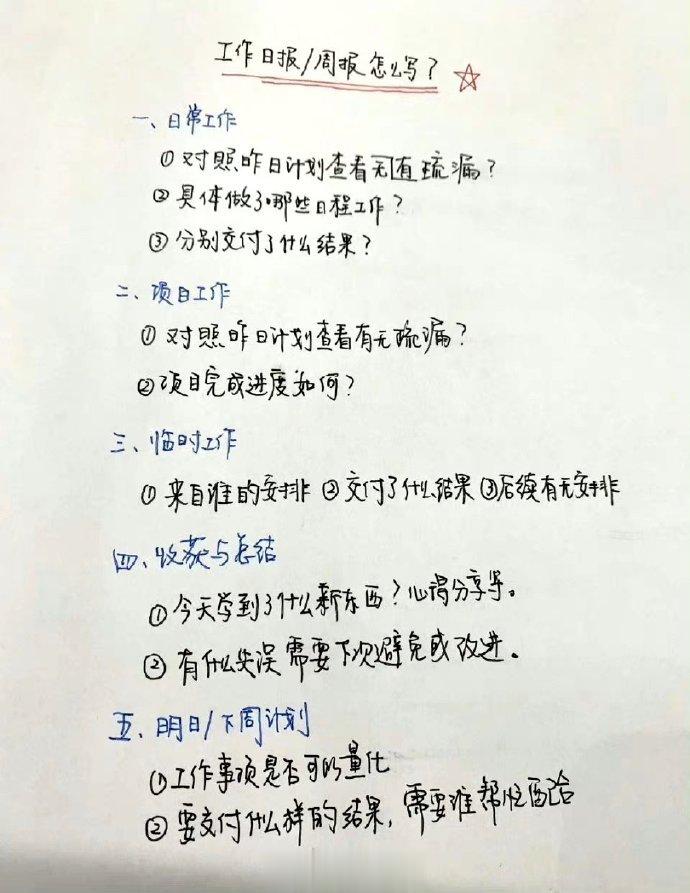 工作日报/周报怎么写?
一、日常工作
①对照昨日计划查看无有疏漏?
②具体做了哪些日程工作?
③分别交付了什么结果?
二、项目工作
①对照昨日计划查看有无疏漏?
②项目完成进度如何?
三、临时工作
①来自谁的安排②交付了什么结果③后续有无安排
四、收获与总结
①今天学到了什么新东西?心得分享等。
②有什么失误需要下次避免或改进。
五、明日/下周计划
①工作事项是否可以量化
②要交付什么样的结果,需要谁帮忙配合